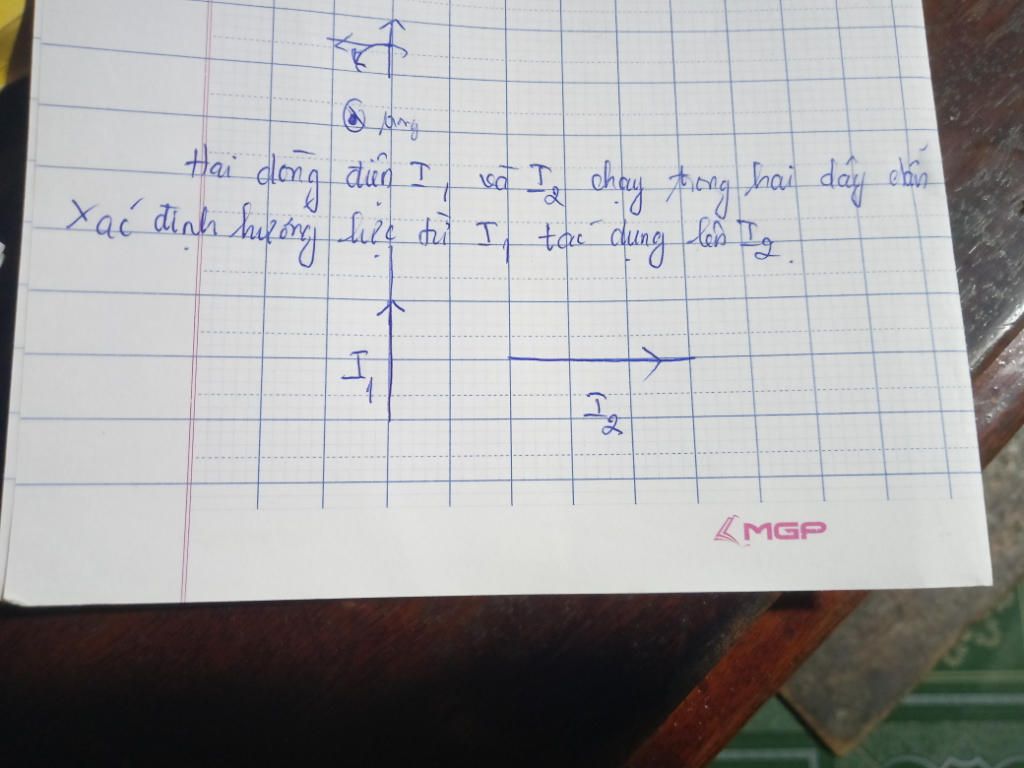 Hai dòng điện I₁ và I₂ chạy trong hai dây dẫn
Xác định hướng lực từ I₁ tác dụng lên I₂.
I₁
I₂
MGP